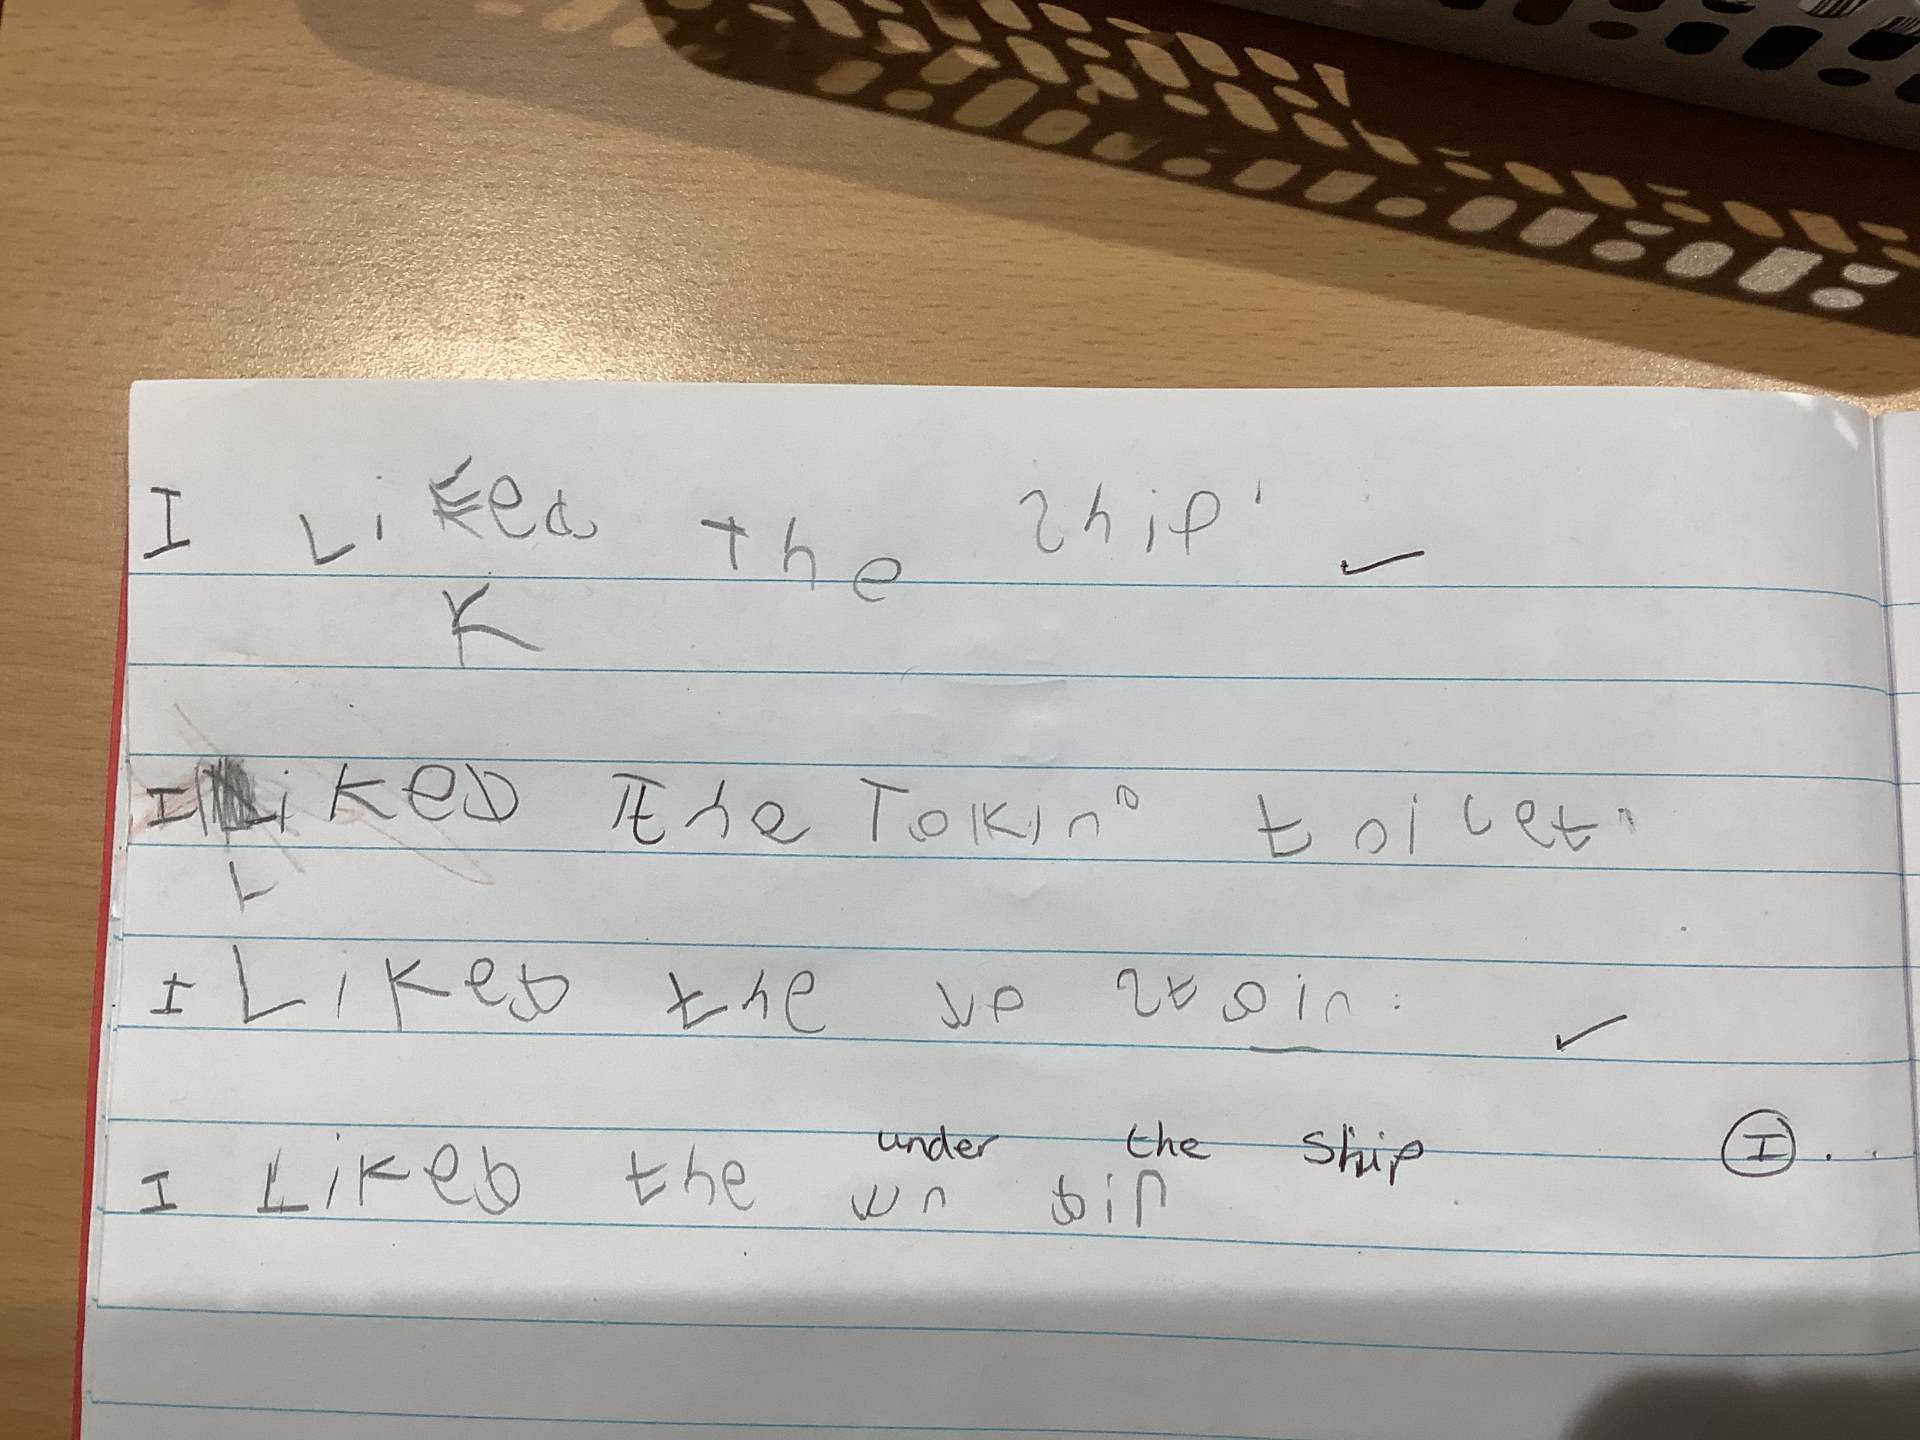 I Liked the ship.
K
I Liked the Tokin toilet.
L
I Liked the up stain.
under the Ship I...
I Liked the un dip